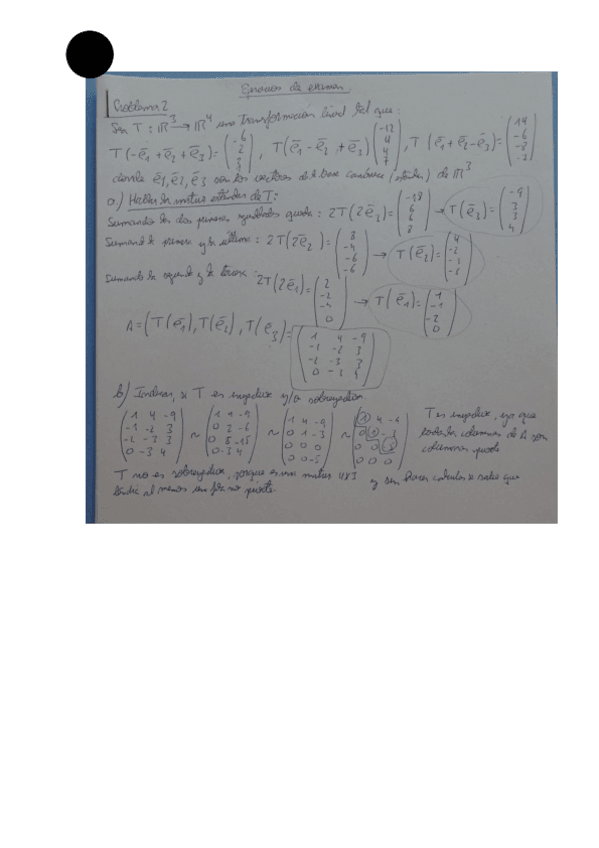 Ejercicios de examen
Problema 2
Sea T : ℝ³ → ℝ⁴ una transformación lineal tal que:
T(-ē1 + ē2 + ē3) = (-6, 2, 2, ), T(ē1 - ē2 + ē3) (-12, 4, 4, 7), T(ē1 + ē2 - ē3) = (14, -6, -8, -7)
donde ē1, ē2, ē3 son los vectores de la base canónica (estándar) de ℝ³
a.) Hallar la matriz estándar de T:
Sumando los dos primeras igualdades queda: 2T(2ē3) = (-18, 6, 6, 8) → T(ē3) = (-9, 3, 3, 4)
Sumando la primera y la última: 2T(2ē2) = (8, -4, -6, -6) → T(ē2) = (4, -2, -3, -3)
Sumando la segunda y la tercera: 2T(2ē1) = (2, -2, -4, 0) → T(ē1) = (1, -1, -2, 0)
A = (T(ē1), T(ē2), T(ē3)) = (1 4 -9; -1 -2 3; -2 -3 3; 0 -3 4)
b) Indicar, si T es inyectiva y/o sobreyectiva
(1 4 -9; -1 -2 3; -2 -3 3; 0 -3 4) ~ (1 4 -9; 0 2 -6; 0 5 -15; 0 -3 4) ~ (1 4 -9; 0 1 -3; 0 0 0; 0 0 -5) ~ (1 4 -9; 0 1 -3; 0 0 ; 0 0 0)
T es inyectiva, ya que
todas las columnas de A son
columnas pivote
T no es sobreyectiva, porque es una matriz 4x3 y sin hacer cálculos se sabe que
tendrá al menos una fila no pivote.